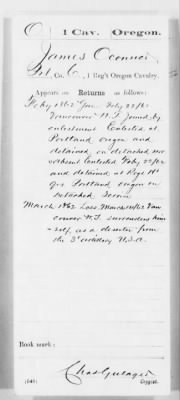 O | 1 Cav. | Oregon.
James Oconner
Pvt., Co. E, 1 Reg't Oregon Cavalry.
Appears on Returns as follows:
Feby 1862 Gain Feby 22/62
Vancouver W.T. Joined by
enlistment Enlisted at
Portland Oregon and
detained on detached ser
Absent Enlisted Feby 22/62
and detained at Regt Hd
Qrs Portland Oregon on
Detached Service
March 1862 Loss March 10/62 Van
couver W.T. surrenders him
self, as a deserter from
the 3" Artillery U.S.A.
Book mark:
(546)
Copyist.